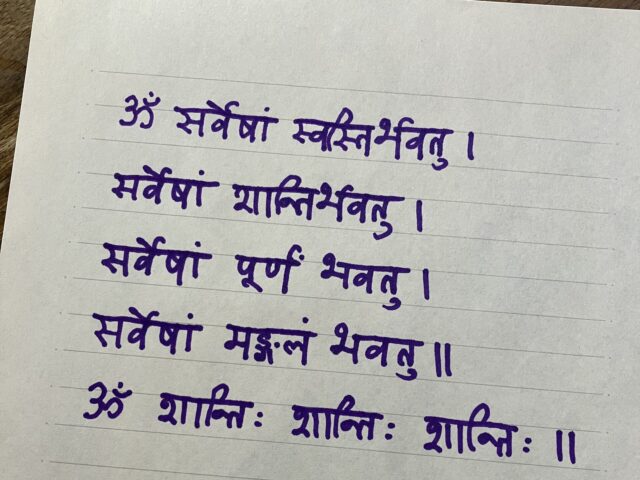 ॐ सर्वेषां स्वस्तिर्भवतु ।
सर्वेषां शान्तिर्भवतु ।
सर्वेषां पूर्णं भवतु ।
सर्वेषां मङ्गलं भवतु ॥
ॐ शान्तिः शान्तिः शान्तिः ॥